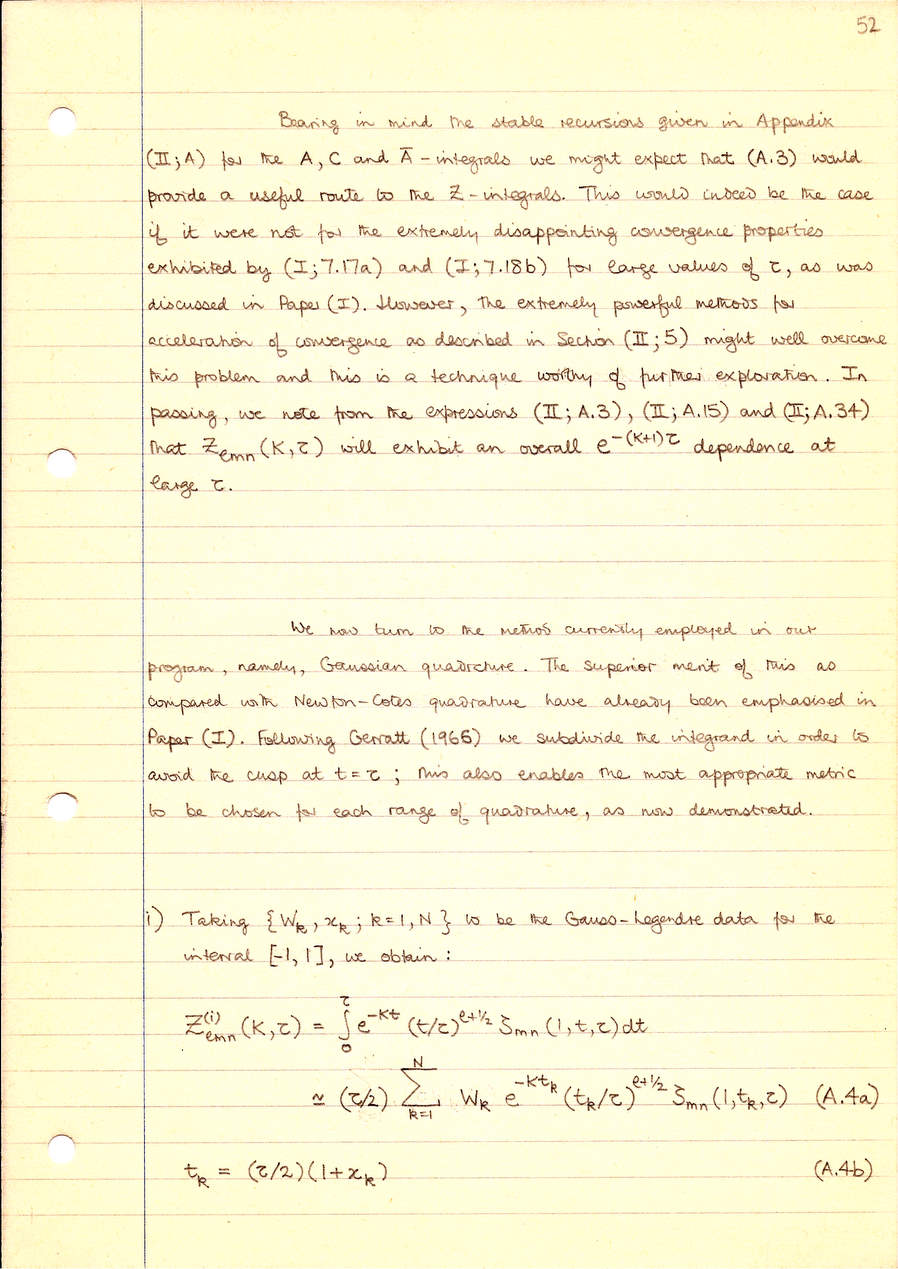 52
Bearing in mind the stable recursions given in Appendix
(II;A) for the A, C and Ā-integrals we might expect that (A.3) would
provide a useful route to the Z-integrals. This would indeed be the case
if it were not for the extremely disappointing convergence properties
exhibited by (I;7.17a) and (I;7.18b) for large values of τ, as was
discussed in Paper (I). However, the extremely powerful methods for
acceleration of convergence as described in Section (II;5) might well overcome
this problem and this is a technique worthy of further exploration. In
passing, we note from the expressions (II;A.3), (II;A.15) and (II;A.34)
that Zℓmn(K,τ) will exhibit an overall e^-(K+1)τ dependence at
large τ.
We now turn to the method currently employed in our
program, namely, Gaussian quadrature. The superior merit of this as
compared with Newton-Cotes quadrature have already been emphasised in
Paper (I). Following Gerratt (1966) we subdivide the integrand in order to
avoid the cusp at t = τ; this also enables the most appropriate metric
to be chosen for each range of quadrature, as now demonstrated.
i) Taking {W_k, x_k; k=1,N} to be the Gauss-Legendre data for the
interval [-1,1], we obtain:
Z^(i)_ℓmn(K,τ) = ∫_0^τ e^-Kt (t/τ)^ℓ+1/2 ζ_mn(1,t,τ)dt
≃ (τ/2) Σ_k=1^N W_k e^-Kt_k (t_k/τ)^ℓ+1/2 ζ_mn(1,t_k,τ) (A.4a)
t_k = (τ/2)(1+x_k) (A.4b)